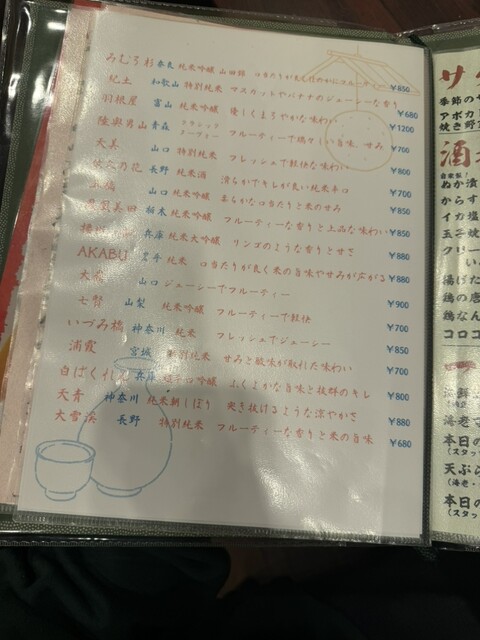 みむろ杉 奈良 純米吟醸 山田錦 口当たりが良く軽やかにフルーティー ¥850
紀土 和歌山 特別純米 マスカットやバナナのジューシーな香り ¥680
羽根屋 富山 純米吟醸 優しくまろやかな味わい ¥1200
陸奥男山 青森 クラシック ヌーヴォー フルーティーで瑞々しい旨味、甘み ¥700
大美 山口 特別純米 フレッシュで軽快な味わい ¥800
佐久の花 長野 純米酒 滑らかでキレが良い純米辛口 ¥700
山口 純米吟醸 柔らかな口当たりと米の甘み ¥850
栃木 純米吟醸 フルーティーな香りと上品な味わい ¥850
兵庫 純米大吟醸 リンゴのような香りと甘さ ¥880
AKABU 岩手 純米 口当たりが良く米の旨味や甘みが広がる ¥880
山口 ジューシーでフルーティー ¥900
七賢 山梨 純米吟醸 フルーティーで軽快 ¥700
いづみ橋 神奈川 純米 フレッシュでジューシー ¥850
浦霞 宮城 特別純米 甘みと酸味が取れた味わい ¥700
白ばくれん 兵庫 吟醸 ふくよかな旨味と抜群のキレ ¥800
天青 神奈川 純米朝しぼり 突き抜けるような涼やかさ ¥880
大雪渓 長野 特別純米 フルーティーな香りと米の旨味 ¥680
サ
季節のサ
アボカ
焼き野
酒
自家製!
ぬか漬
からす
イカ塩
玉子焼
クリー
揚げた
鶏の唐
鶏なん
コロコ
海鮮
海老マ
本日の
(スタッ
天ぷら
(海老・
本日の
(スタッ